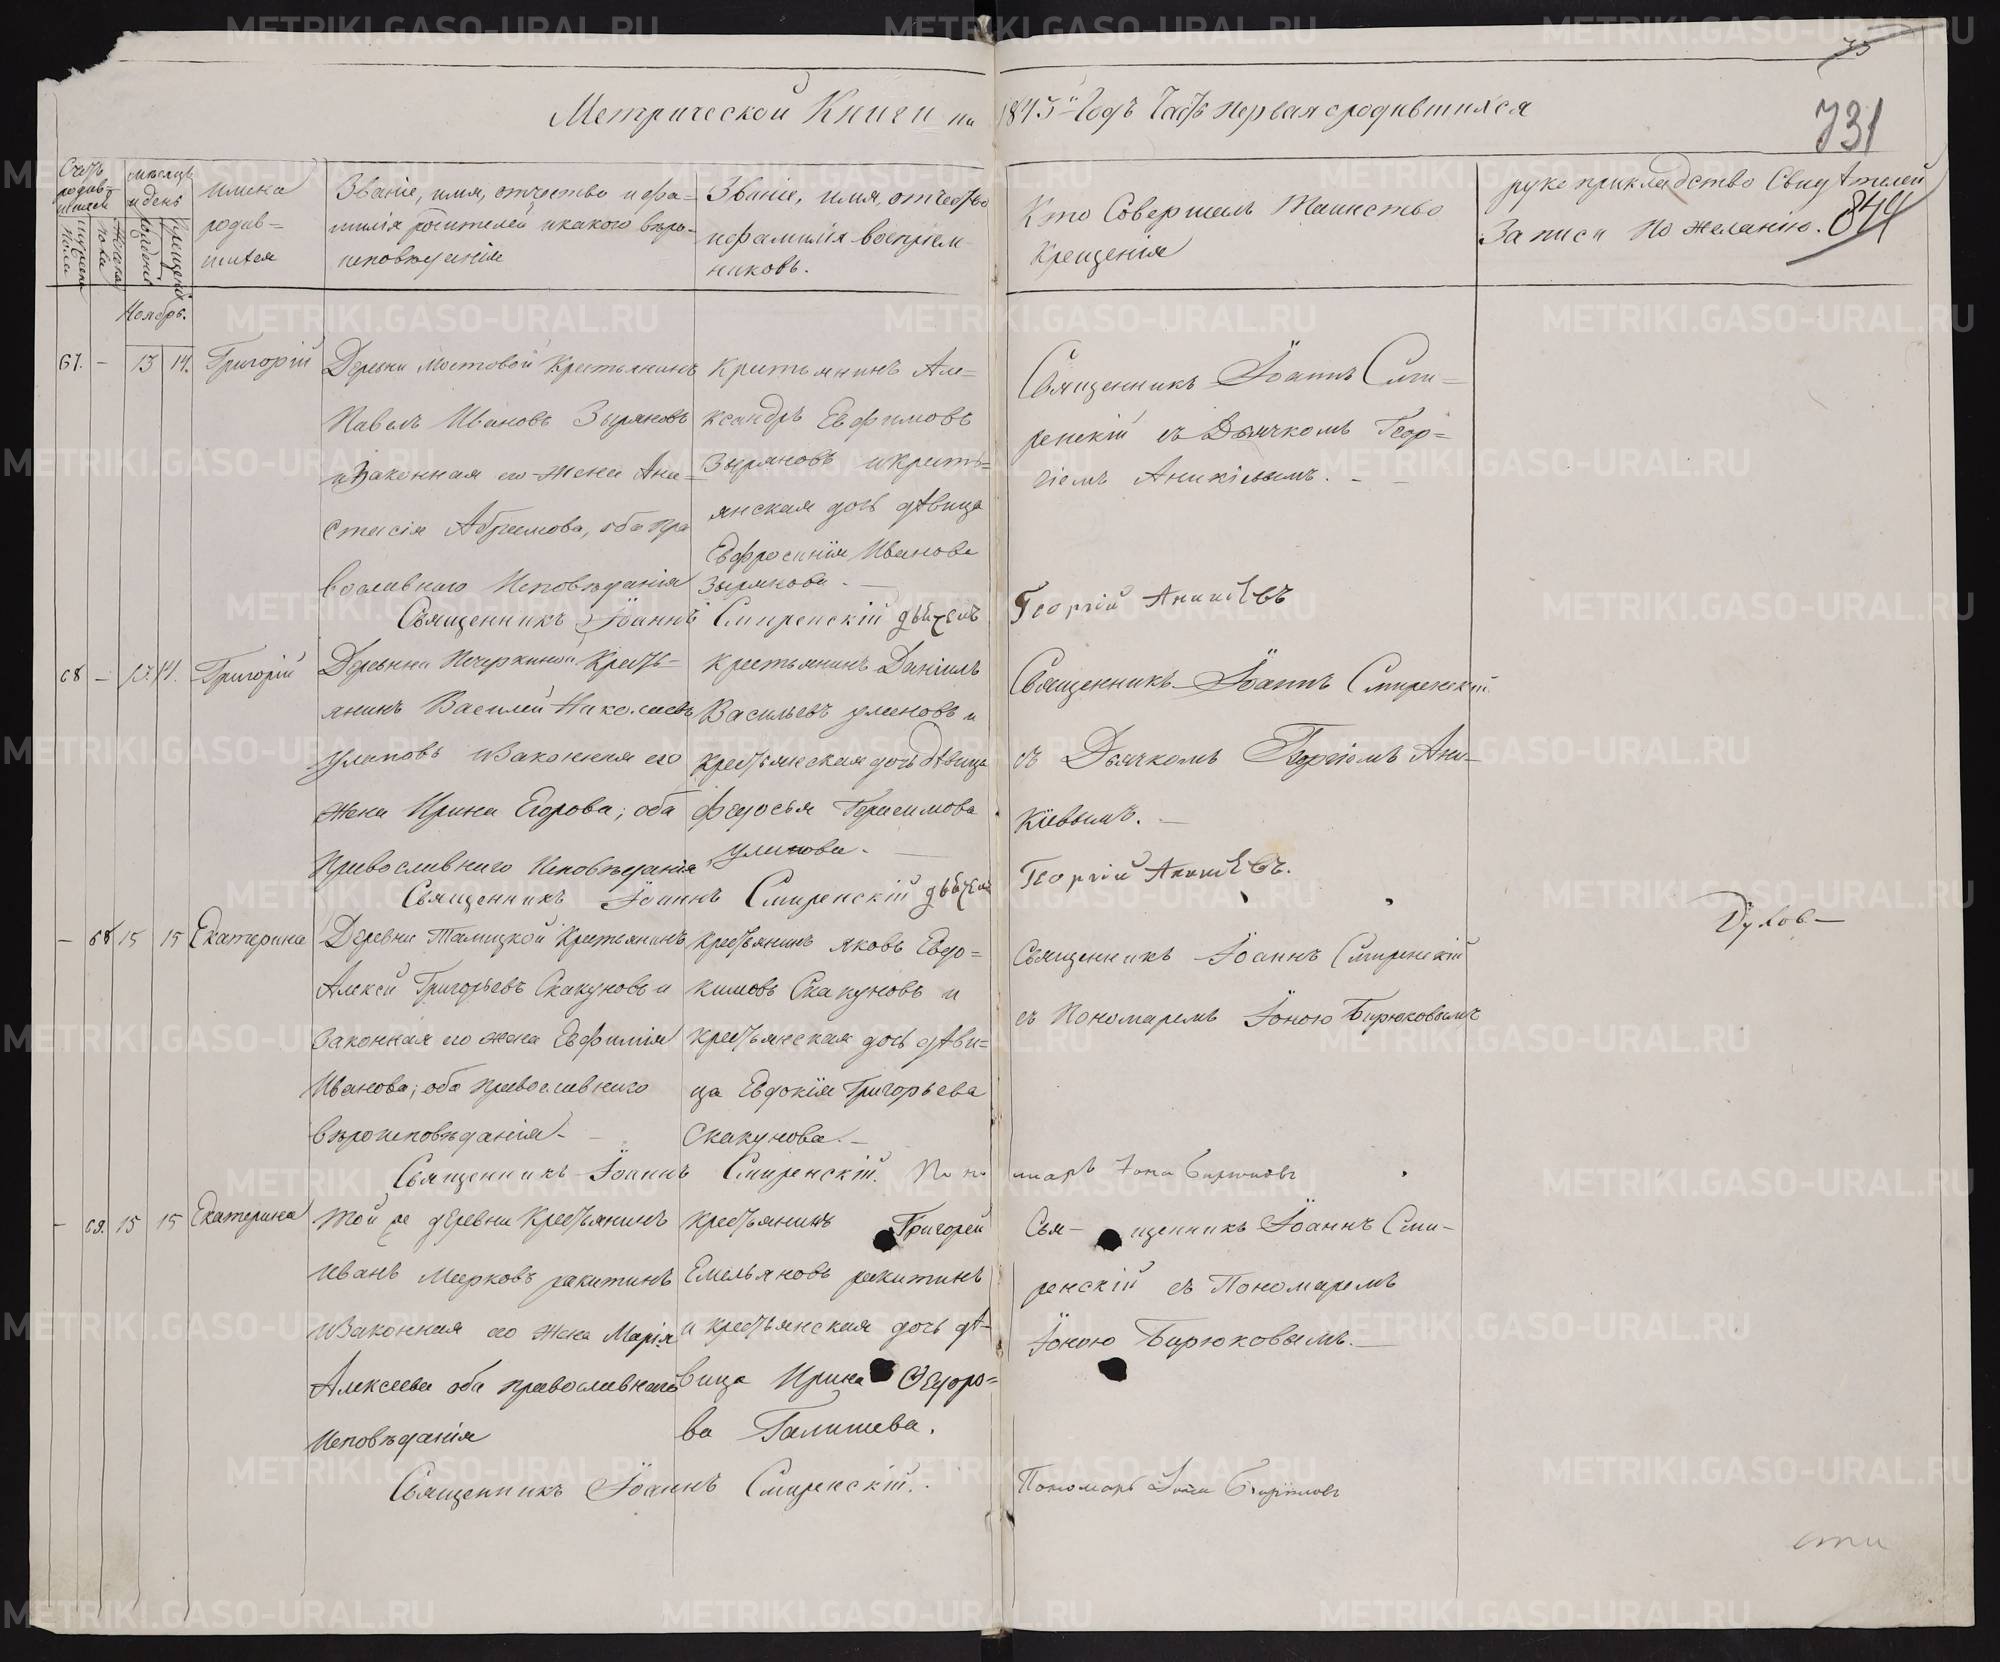 75
Метрической Книги на 1845й Годъ Часть первая о родившихся
731
844
Счетъ родившихся
мужеска пола
женска пола
мѣсяцъ и день
рожденія
крещенія
имена родив=шихся
Званіе, имя, отчество и фа=
милія родителей и какого вѣро=
исповѣданія
Званіе, имя, отчество
и фамилія воспріем
никовъ.
Кто Совершалъ Таинство
Крещенія
рукоприкладство Свидѣтелей
Записи по желанію.
Ноябрь.
67. - 13 14. Григорій
Деревни Мостовой Крестьянинъ
Павелъ Ивановъ Зыряновъ
и Законная его жена Ана=
стасія Абрамова, оба пра
вославнаго Исповѣданія
Крестьянинъ Але=
ксандръ Евфимовъ
Зыряновъ и кресть=
янская дочь дѣвица
Евфросинія Иванова
Зырянова. —
Священникъ Іоаннъ Сми=
ренскій съ Дьячкомъ Геор=
гіемъ Аникіевымъ. -
Священникъ Іоаннъ Смиренскій дьячекъ Георгій Аникіевъ
68 - 13. 14. Григорій
Деревни Печеркиной Кресть=
янинъ Василей Николаевъ
Улановъ и Законная его
жена Ирина Егорова; оба
Православнаго Исповѣданія
крестьянинъ Даніилъ
Васильевъ Улановъ и
крестьянская дочь дѣвица
Федосья Герасимова
Уланова. —
Священникъ Іоаннъ Смиренскій
съ Дьячкомъ Георгіемъ Ани=
кіевымъ. —
Священникъ Іоаннъ Смиренскій дьячекъ Георгій Аникіевъ.
- 68 15 15 Екатерина
Деревни Талицкой Крестьянинъ
Алексѣй Григорьевъ Скакуновъ и
Законная его жена Евфимія
Иванова; оба православнаго
вѣроисповѣданія -
Крестьянинъ Яковъ Евдо=
кимовъ Скакуновъ и
крестьянская дочь дѣви=
ца Евдокія Григорьева
Скакунова. —
Священникъ Іоаннъ Смиренскій
съ Пономаремъ Іоною Бирюковымъ
Духов—
Священникъ Іоаннъ Смиренскій. Пономарь Іона Бирюковъ
- 69. 15 15 Екатерина
Той же деревни Крестьянинъ
Иванъ Марковъ ракитинъ
и Законная его Жена Марія
Алексеева оба православнаго
Исповѣданія
Крестьянинъ Григорей
Емельяновъ ракитинъ
и крестьянская дочь дѣ=
вица Ирина Ѳедоро=
ва Галишева.
Свя- щенникъ Іоаннъ Сми-
ренскій съ Пономаремъ
Іоною Бирюковымъ. —
Священникъ Іоаннъ Смиренскій. Пономарь Іона Бирюковъ
METRIKI.GASO-URAL.RU